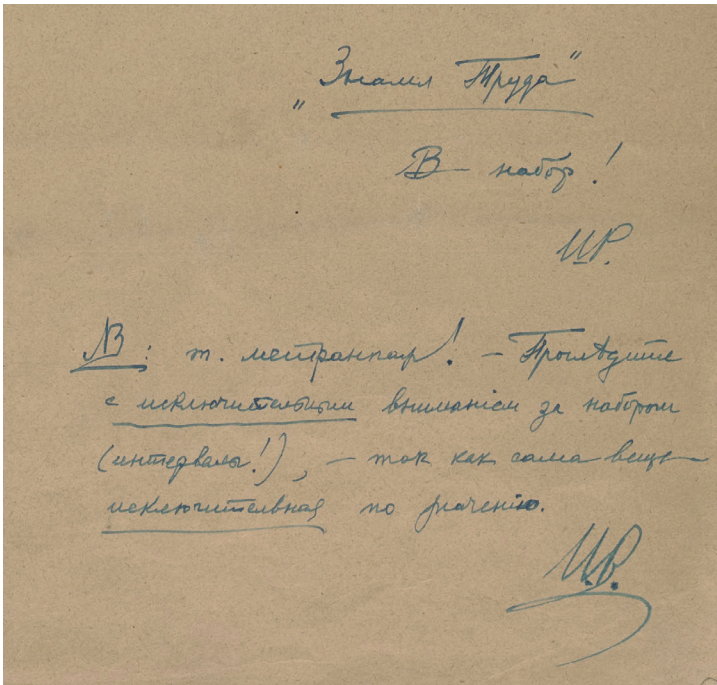 „Знамя Труда“
В набор!
И.Р.
NB: т. метранпаж! – Прослѣдите
с исключительным вниманіем за набором
(интервалы!), – так как сама вещь
исключительная по значенію.
И.Р.